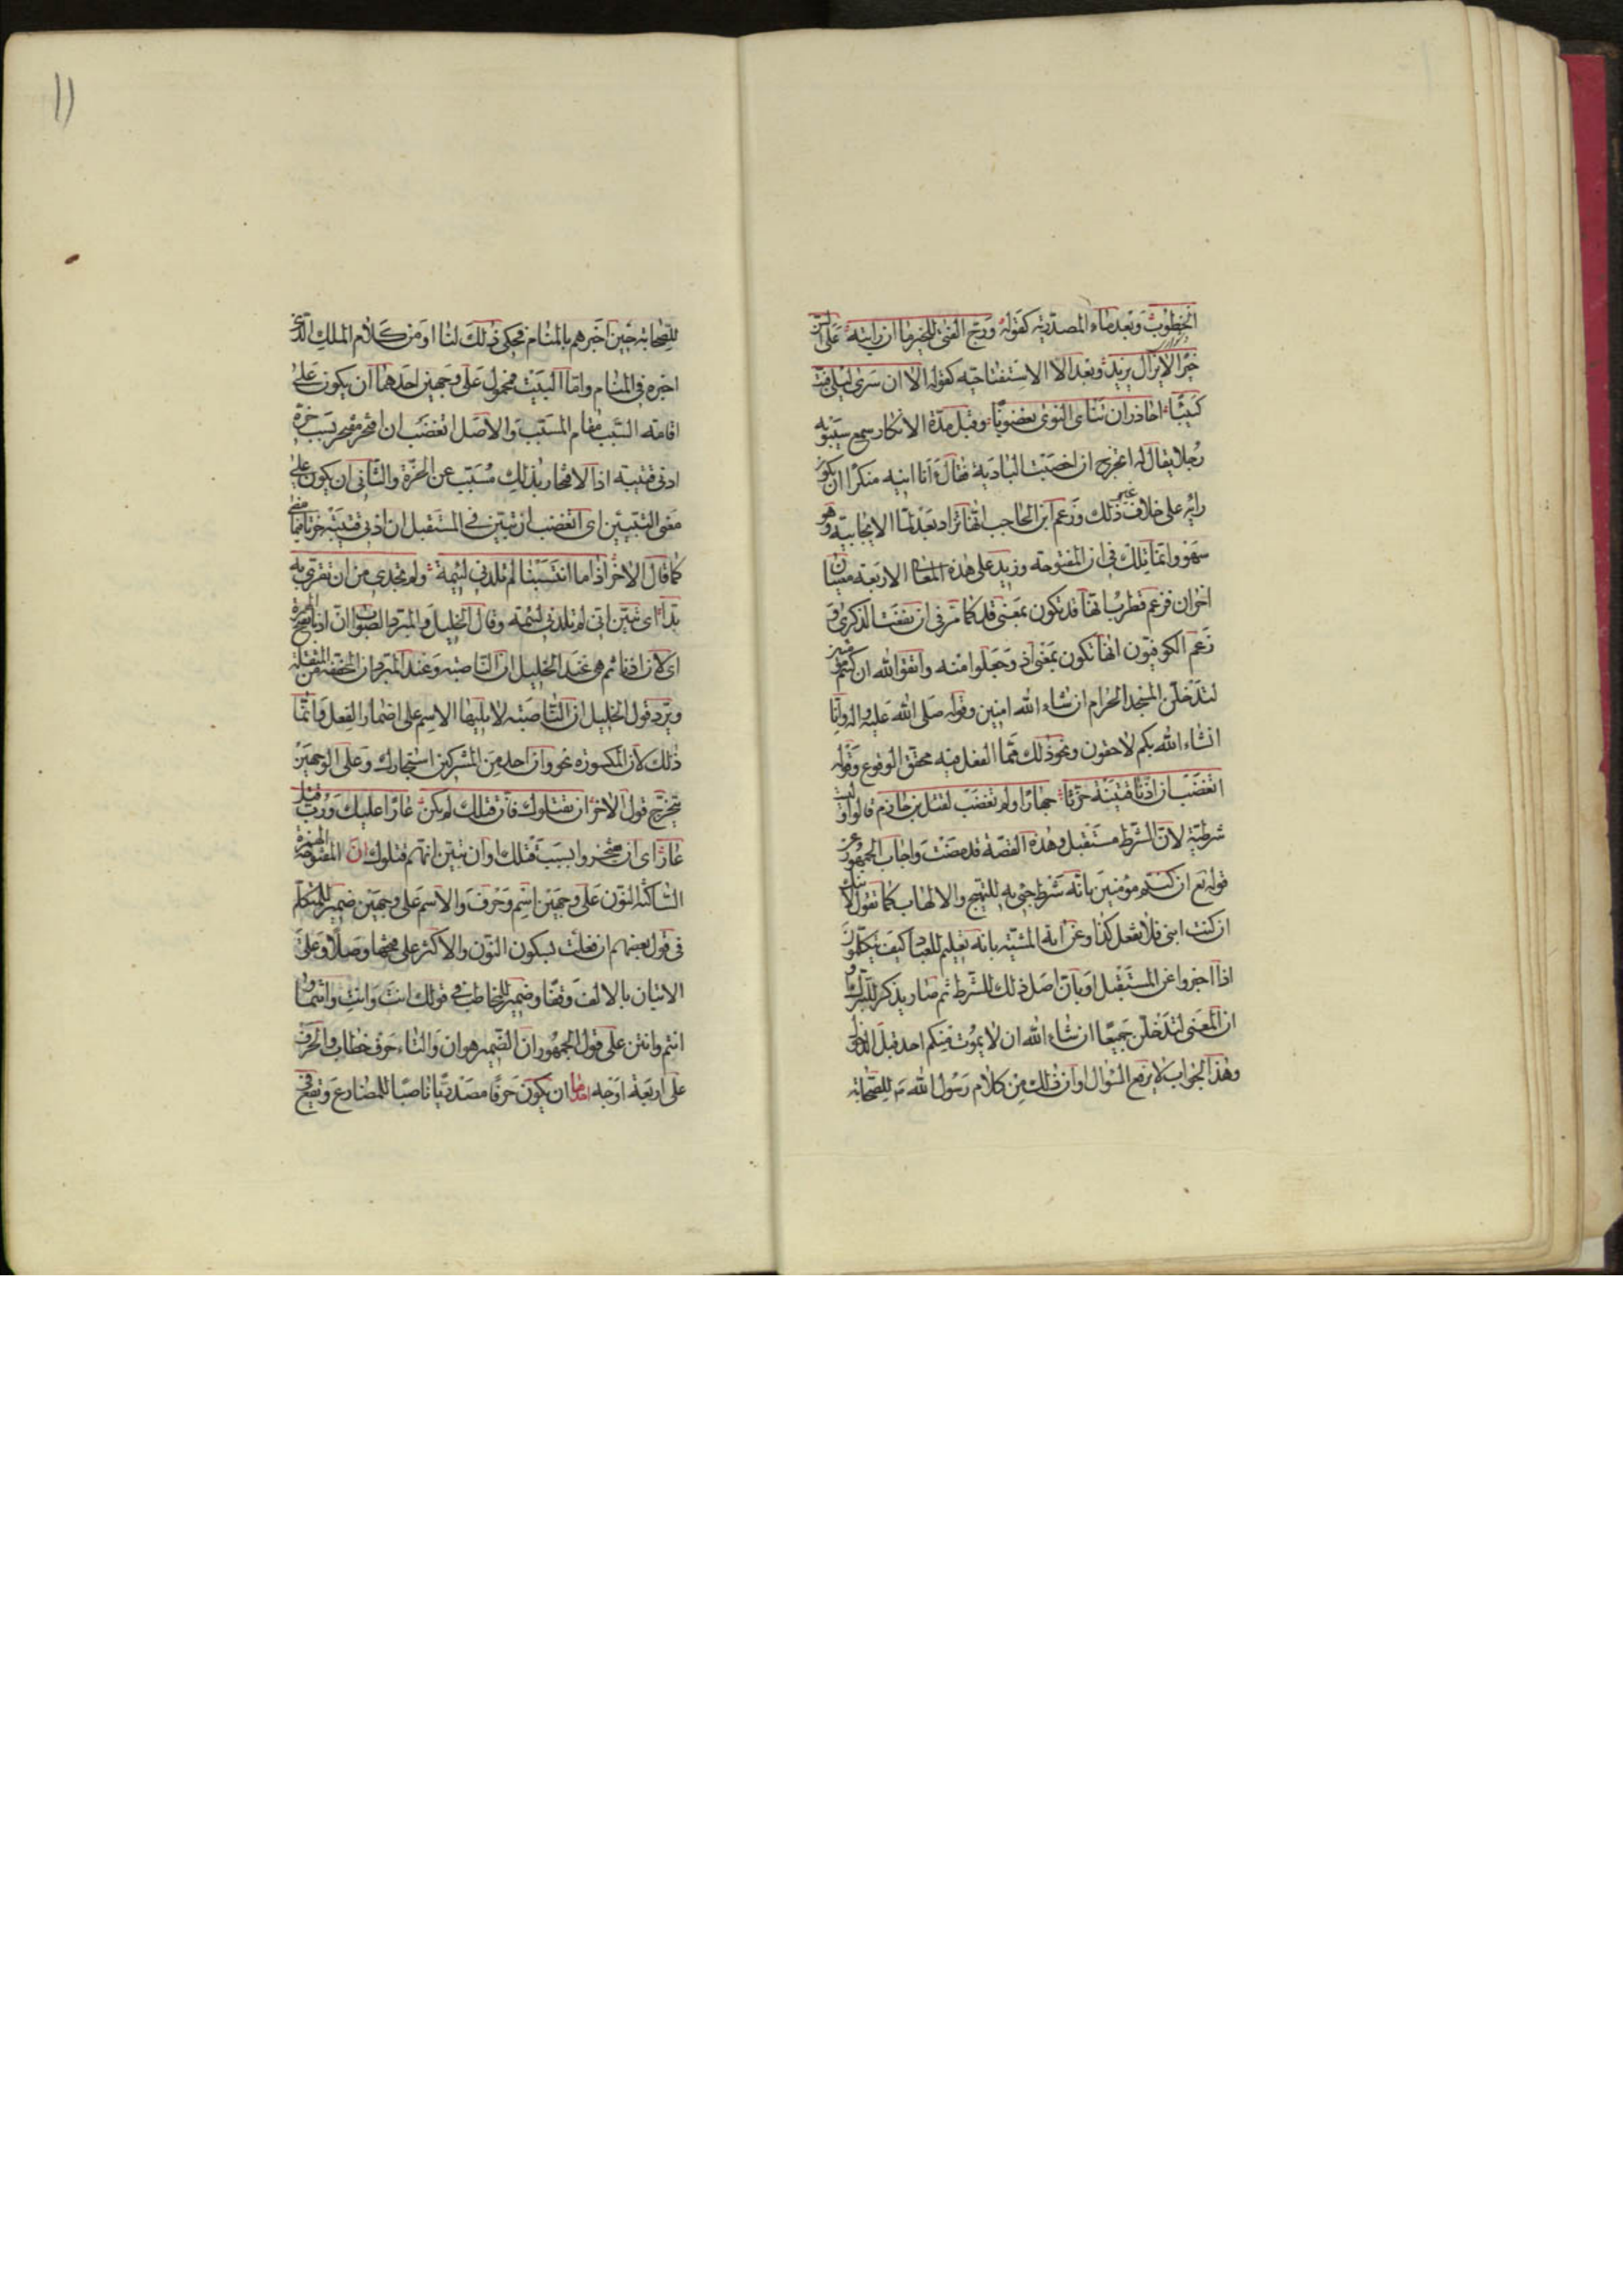 الخطوب وبعد ماء المصدرية كقوله ورج الفتى للخير ما ان رايته على السن
خيرا لا يزال يزيد وبعد الا الاستفتاحية كقوله الا ان سرى ليلى فبت
كئيبا احاذر ان تنأى النوى بغضوبا وقبل مدة الانكار سمع سيبويه
رجلا يقال له اتخرج ان اخصبت البادية فقال أنا انيه منكرا ان يكون
رايه على خلاف غير ذلك وزعم ابن الحاجب انها تزاد بعد لما الايجابية وهو
سهو وانما تلك في ان المفتوحة وزيد على هذه المعانى الاربعة معنيان
اخران فزعم قطرب انها قد تكون بمعنى قد كما مر في ان نفعت الذكرى و
زعم الكوفيون انها تكون بمعنى اذ وجعلوا منه واتقوا الله ان كنتم مؤمنين
لتدخلن المسجد الحرام ان شاء الله امنين وقوله صلى الله عليه واله وانا
انشاء الله بكم لاحقون ونحو ذلك مما الفعل فيه محقق الوقوع وقوله
اتغضب ان اذنا قتيبة حزتا جهارا ولم تغضب لقتل ابن خازم قالوا وليست
شرطية لان الشرط مستقبل وهذه القصة قد مضت واجاب الجمهور عن
قوله تع ان كنتم مؤمنين بانه شرط جئ به للتهيج والالهاب كما تقول لابنك
ان كنت ابنى فلا تفعل كذا وعن اية المشية بانه تعليم للعباد كيف يتكلمون
اذا اخبروا عن المستقبل او بان اصل ذلك للشرط ثم صار يذكر للتبرك او
ان المعنى لتدخلن جميعا ان شاء الله ان لا يموت منكم احد قبل الدخول
وهذا الجواب لا يرفع السؤال او ان ذلك من كلام رسول الله ص للصحابه
للصحابه حين اخبرهم بالمنام فحكى ذلك لنا او من كلام الملك الذى
اخبره في المنام واما البيت فمحمول على وجهين احدهما ان يكون على
اقامة السبب مقام المسبب والاصل اتغضب ان افتخر مفتخر بسبب حز
اذنى قتيبة اذ الافتخار بذلك مسبب عن الحز والثانى ان يكون على
معنى التبيين اى اتغضب ان تبين في المستقبل ان اذنى قتيبة حزتا فيما مضى
كما قال الاخر اذا ما انتسبنا لم تلدنى لئيمة ولم تجدى من ان تقرى به
بدا اى تبين انى لم تلدنى لئيمه وقال الخليل والمبرد الصواب ان اذنا بفتح الهمزة
اى لان اذنا ثم هى عند الخليل ان الناصبه وعند المبرد ان المخففة من المثقلة
ويرد قول الخليل ان الناصبه لا يليها الاسم على اضمار الفعل وانما
ذلك لان المكسورة نحو وان احد من المشركين استجارك وعلى الوجهين
يتخرج قول الاخر ان يقتلوك فان قتلك لم يكن عارا عليك ورب قتل
عار اى ان يفتخروا بسبب قتلك او ان تبين انهم قتلوك ان المفتوحة الهمزة
الساكنة النون على وجهين اسم وحرف والاسم على وجهين ضمير للمتكلم
في قول بعضهم ان فعلت بسكون النون والاكثر على فتحها وصلا وعلى
الاتيان بالالف وقفا وضمير للمخاطب في قولك انت وانت وانتما و
انتم وانتن على قول الجمهور ان الضمير هو ان والتاء حرف خطاب والحرف
على اربعة اوجه احدها ان يكون حرفا مصدريا ناصبا للمضارع وتقع في